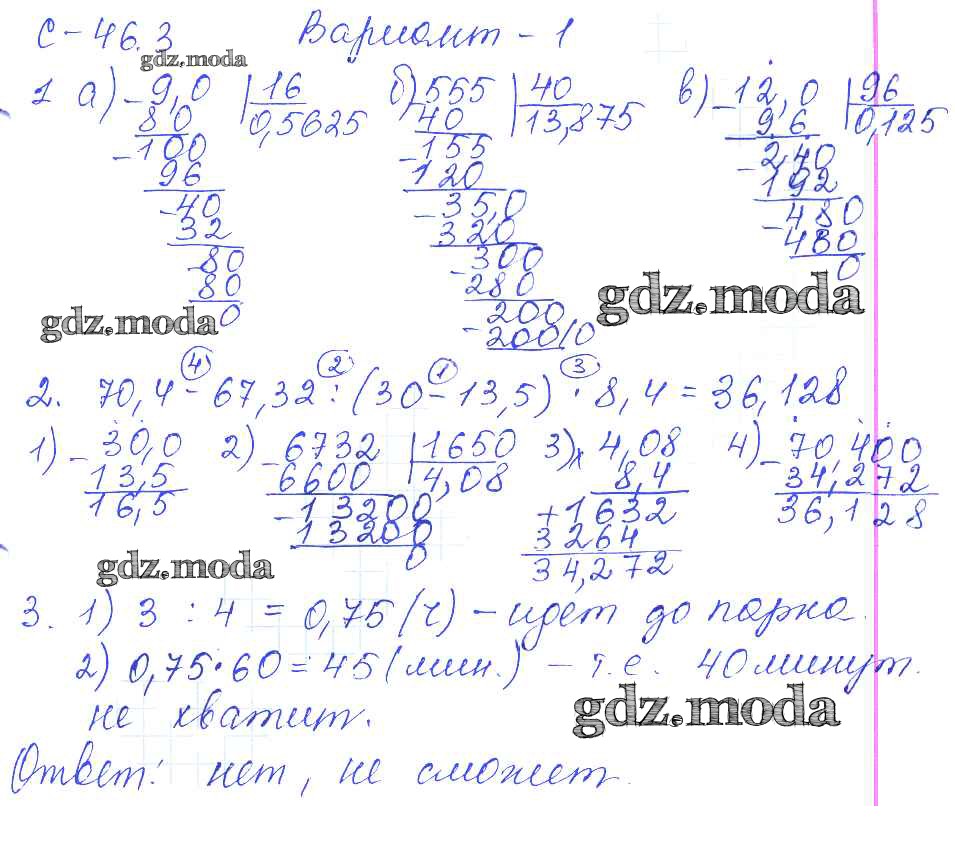 С-46.3 Вариант - 1
gdz.moda
1 а) -9,0 |16 б) -555 |40 в) -12,0 |96
80 0,5625 40 13,875 9 6 0,125
-100 -155 -2,40
96 120 192
-40 -35,0 -480
32 320 480
-80 -300 0
80 280 gdz.moda
0 -200
gdz.moda 200 0
④ ② ① ③
2. 70,4 - 67,32 : (30 - 13,5) · 8,4 = 36,128
1) -30,0 2) -6732 |1650 3) x 4,08 4) -70,400
13,5 6600 4,08 8,4 34,272
16,5 -13200 +1632 36,128
13200 3264
0 34,272
gdz.moda
3. 1) 3 : 4 = 0,75 (ч) - идёт до парка.
2) 0,75 · 60 = 45 (мин.) - т.е. 40 минут.
не хватит.
gdz.moda
Ответ: нет, не сможет.